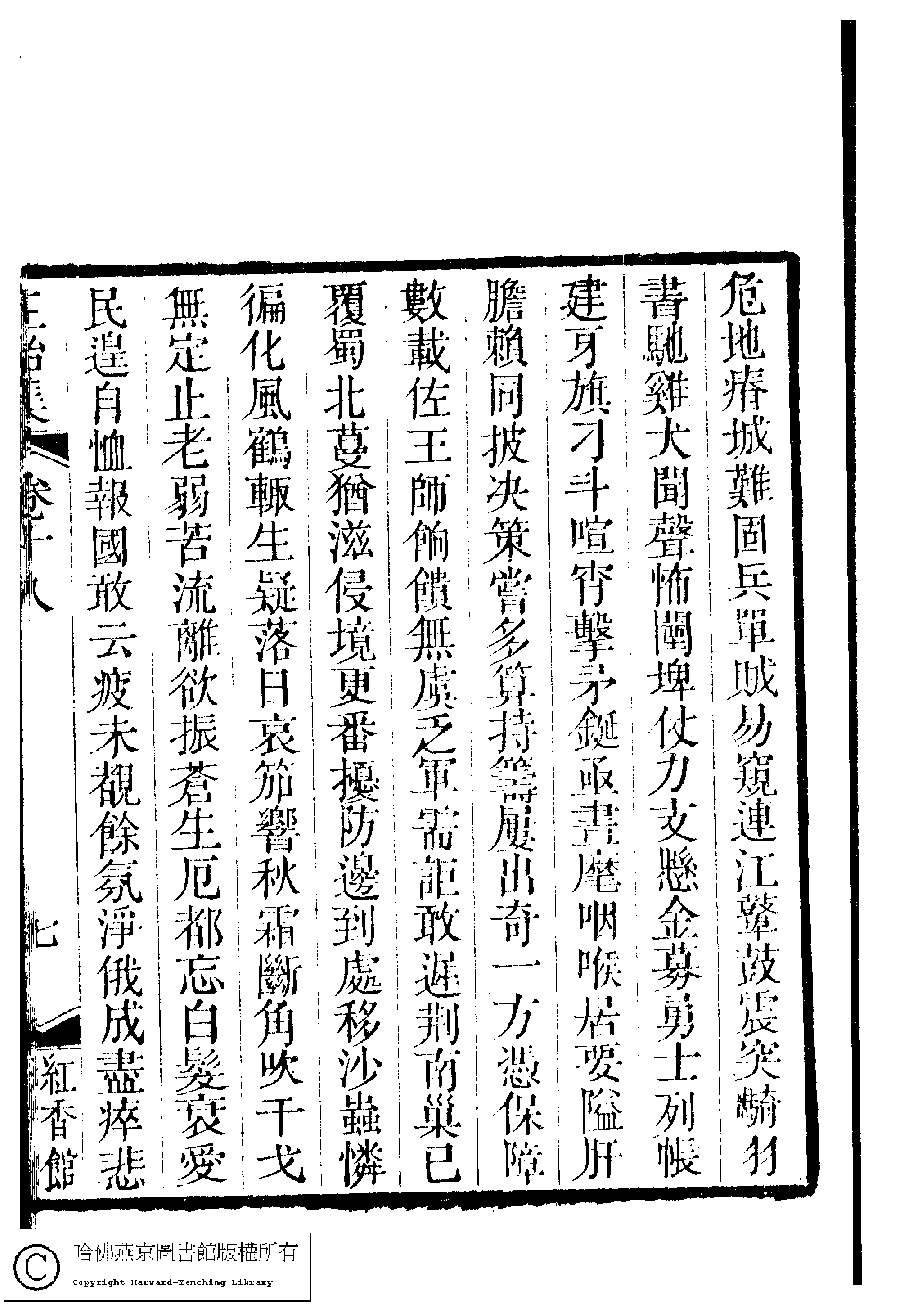 危地瘠城難固兵單賊易窺連江鼙鼓震突騎羽
書馳雞犬聞聲怖閩埤仗力支懸金募勇士列帳
建牙旗刁斗喧宵擊矛鋋亟晝麾咽喉居要隘肝
膽賴同披决策嘗多算持籌屢出奇一方憑保障
數載佐王師餉饋無虞乏軍需詎敢遲荆南巢已
覆蜀北蔓猶滋侵境更番擾防邊到處移沙蟲憐
徧化風鶴輙生疑落日哀笳響秋霜斷角吹干戈
無定止老弱苦流離欲振蒼生厄都忘白髮衰愛
民遑自恤報國敢云疲未覩餘氛淨俄成盡瘁悲
正始集 卷十八 七 紅香館
哈佛燕京圖書館版權所有
Copyright Harvard-Yenching Library